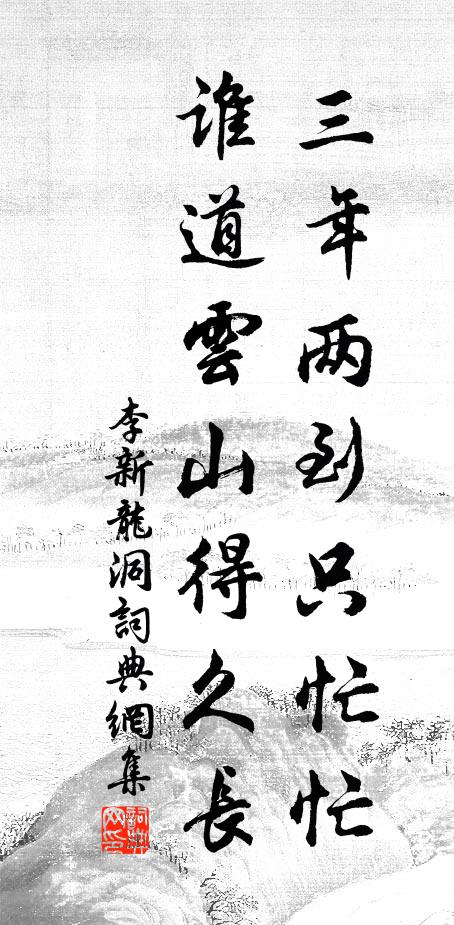 三年两到只忙忙
誰道雲山得久長
李新龍洞詞典網集
詞典网印